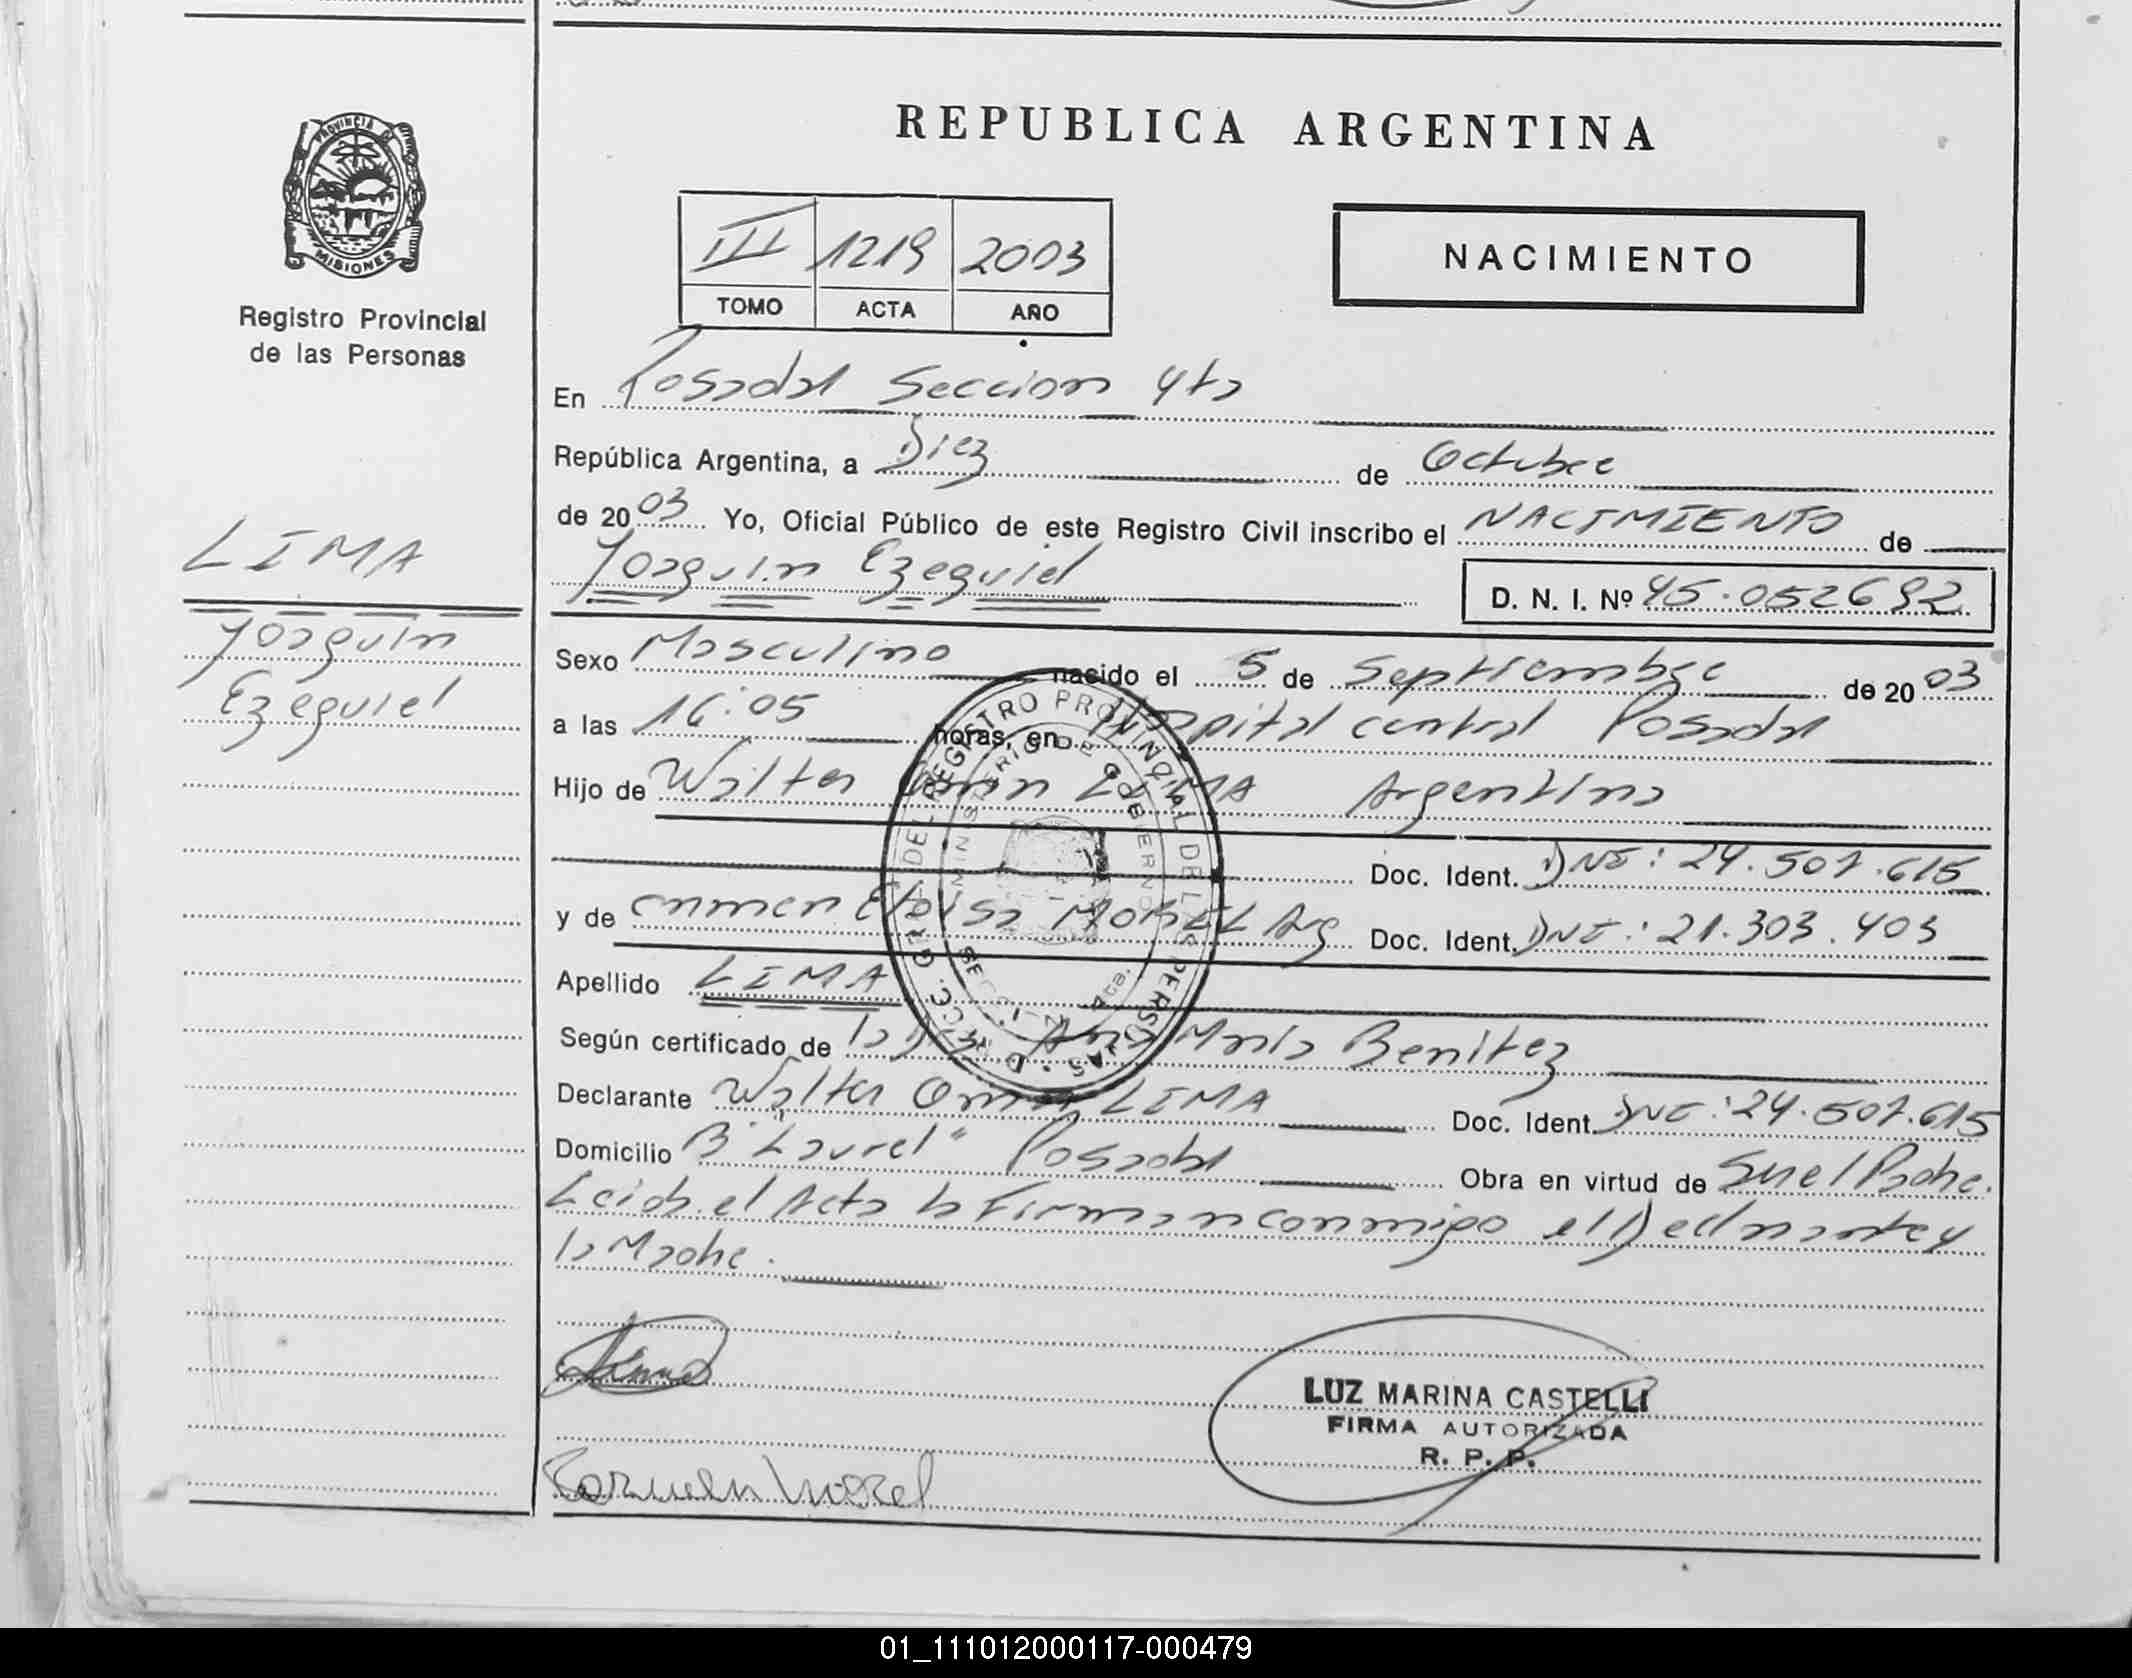 PROVINCIA DE
MISIONES
Registro Provincial
de las Personas
LIMA
Joaquin
Ezequiel
REPUBLICA ARGENTINA
III 1219 2003
TOMO ACTA AÑO
NACIMIENTO
En Posadas Seccion 4ta
República Argentina, a Diez de Octubre
de 2003 Yo, Oficial Público de este Registro Civil inscribo el NACIMIENTO de
Joaquin Ezequiel D. N. I. Nº 45.052692
Sexo Masculino nacido el 5 de Septiembre de 2003
a las 16:05 horas, en Hospital central Posadas
Hijo de Walter Omar LIMA Argentino
Doc. Ident. DNI: 24.507.615
y de Carmen Eloisa MOREL Arg Doc. Ident. DNI: 21.303.403
Apellido LIMA
Según certificado de la Dra. Ana Maria Benitez
Declarante Walter Omar LIMA Doc. Ident. DNI: 24.507.615
Domicilio B "Laurel" Posadas Obra en virtud de Ser el Padre.
Leida el Acta la Firman conmigo el Declarante y
la Madre.
Lima
LUZ MARINA CASTELLI
FIRMA AUTORIZADA
R. P. P.
Carmen Morel
DEL REGISTRO PROVINCIAL DE LAS PERSONAS
MINISTERIO DE GOBIERNO
SECCION 4ta.
01_111012000117-000479